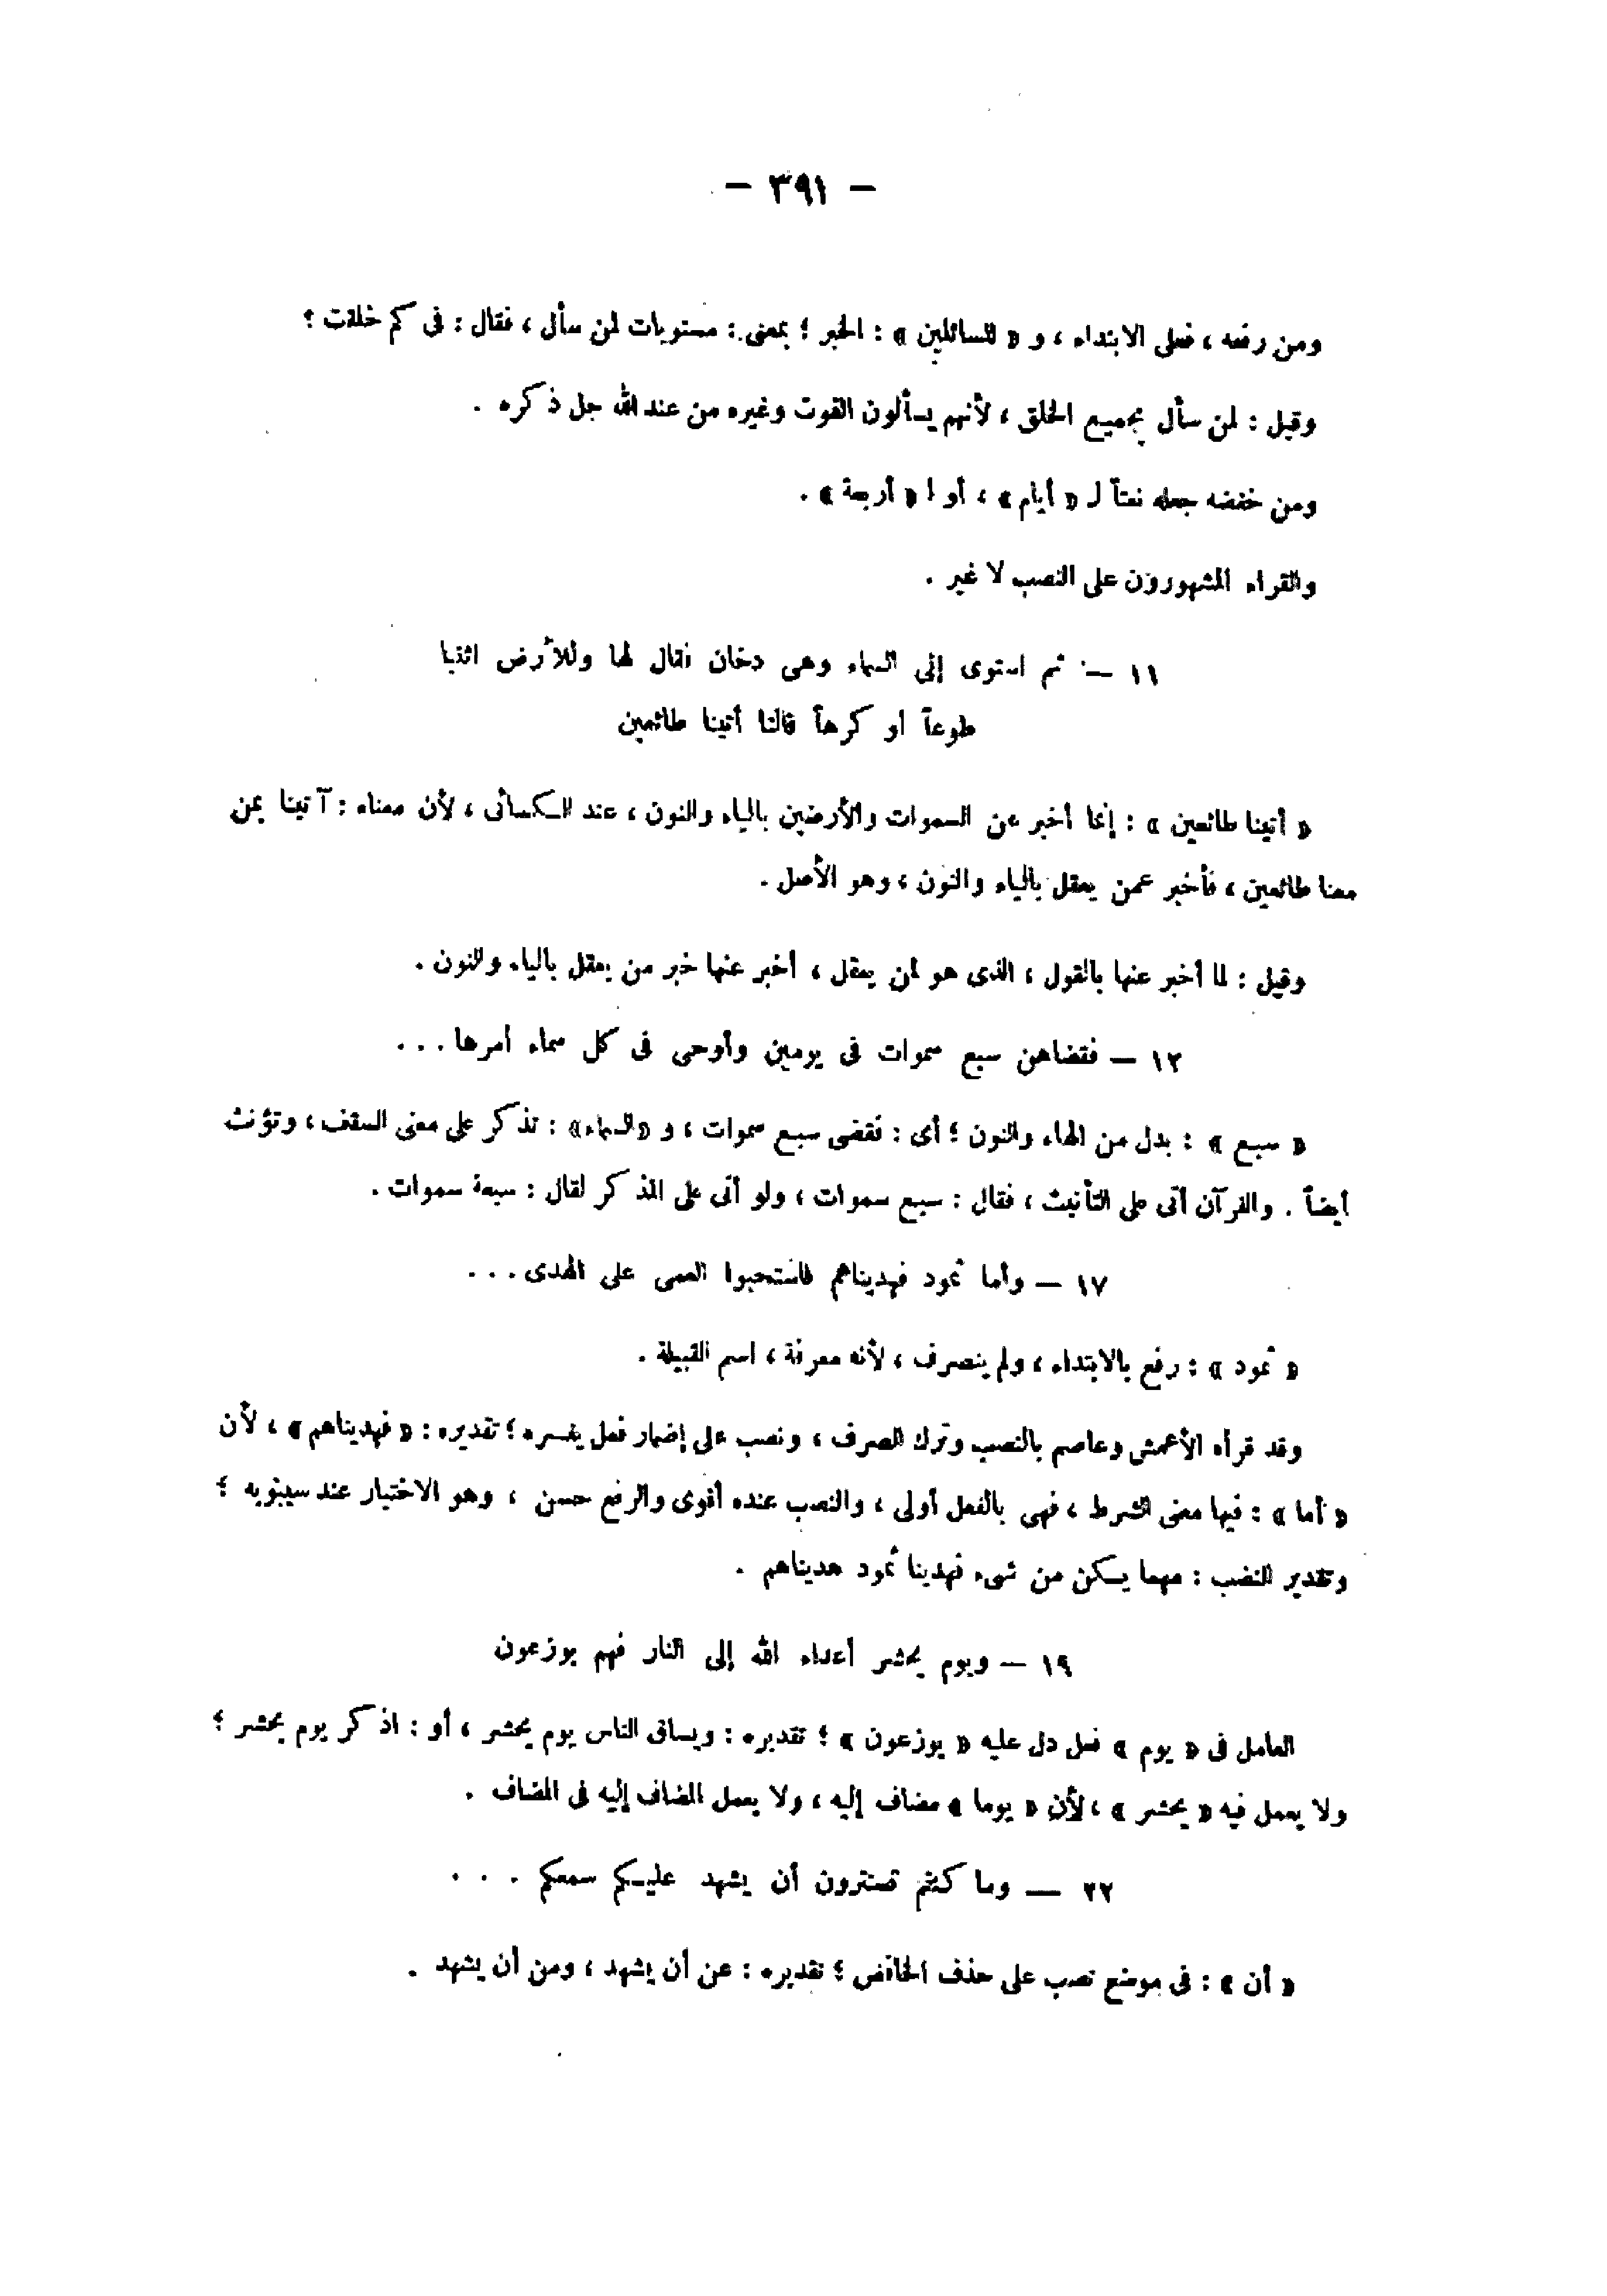 — ٣٩١ —
ومن رفعه ، فعلى الابتداء ، و « للسائلين » : الخبر ؛ بمعنى : مستويات لمن سأل ، فقال : فى كم خلقت ؟
وقيل : لمن سأل بجميع الخلق ، لأنهم يسألون القوت وغيره من عند الله جل ذكره .
ومن خفضه جعله نعتاً لـ « أيام » ، أو لـ « أربعة » .
والقراء المشهورون على النصب لا غير .
١١ — ثم استوى إلى السماء وهى دخان فقال لها وللأرض ائتيا
طوعاً أو كرهاً قالتا أتينا طائعين
« أتينا طائعين » : إنما أخبر عن السموات والأرضين بالياء والنون ، عند الكسائى ، لأن معناه : آتينا بمن
معنا طائعين ، فأخبر عمن يعقل بالياء والنون ، وهو الأصل .
وقيل : لما أخبر عنها بالقول ، الذى هو لمن يعقل ، أخبر عنها خبر من يعقل بالياء والنون .
١٢ — فقضاهن سبع سموات فى يومين وأوحى فى كل سماء أمرها . . .
« سبع » : بدل من الهاء والنون ؛ أى : فقضى سبع سموات ، و «السماء» : تذكر على معنى السقف ، وتؤنث
أيضاً . والقرآن أتى على التأنيث ، فقال : سبع سموات ، ولو أتى على المذكر لقال : سبعة سموات .
١٧ — وأما ثمود فهديناهم فاستحبوا العمى على الهدى . . .
« ثمود » : رفع بالابتداء ، ولم ينصرف ، لأنه معرفة ، اسم القبيلة .
وقد قرأه الأعمش وعاصم بالنصب وترك الصرف ، ونصب على إضمار فعل يفسره ؛ تقديره : « فهديناهم » ، لأن
« أما » : فيها معنى الشرط ، فهى بالفعل أولى ، والنصب عنده أقوى والرفع حسن ، وهو الاختيار عند سيبويه ؛
وتقدير النصب : مهما يكن من شىء فهدينا ثمود هديناهم .
١٩ — ويوم يحشر أعداء الله إلى النار فهم يوزعون
العامل فى « يوم » فعل دل عليه « يوزعون » ؛ تقديره : ويساق الناس يوم يحشر ، أو : اذكر يوم يحشر ؛
ولا يعمل فيه « يحشر » ، لأن « يوما » مضاف إليه ، ولا يعمل المضاف إليه فى المضاف .
٢٢ — وما كنتم تستترون أن يشهد عليكم سمعكم . . .
« أن » : فى موضع نصب على حذف الخافض ؛ تقديره : عن أن يشهد ، ومن أن يشهد .